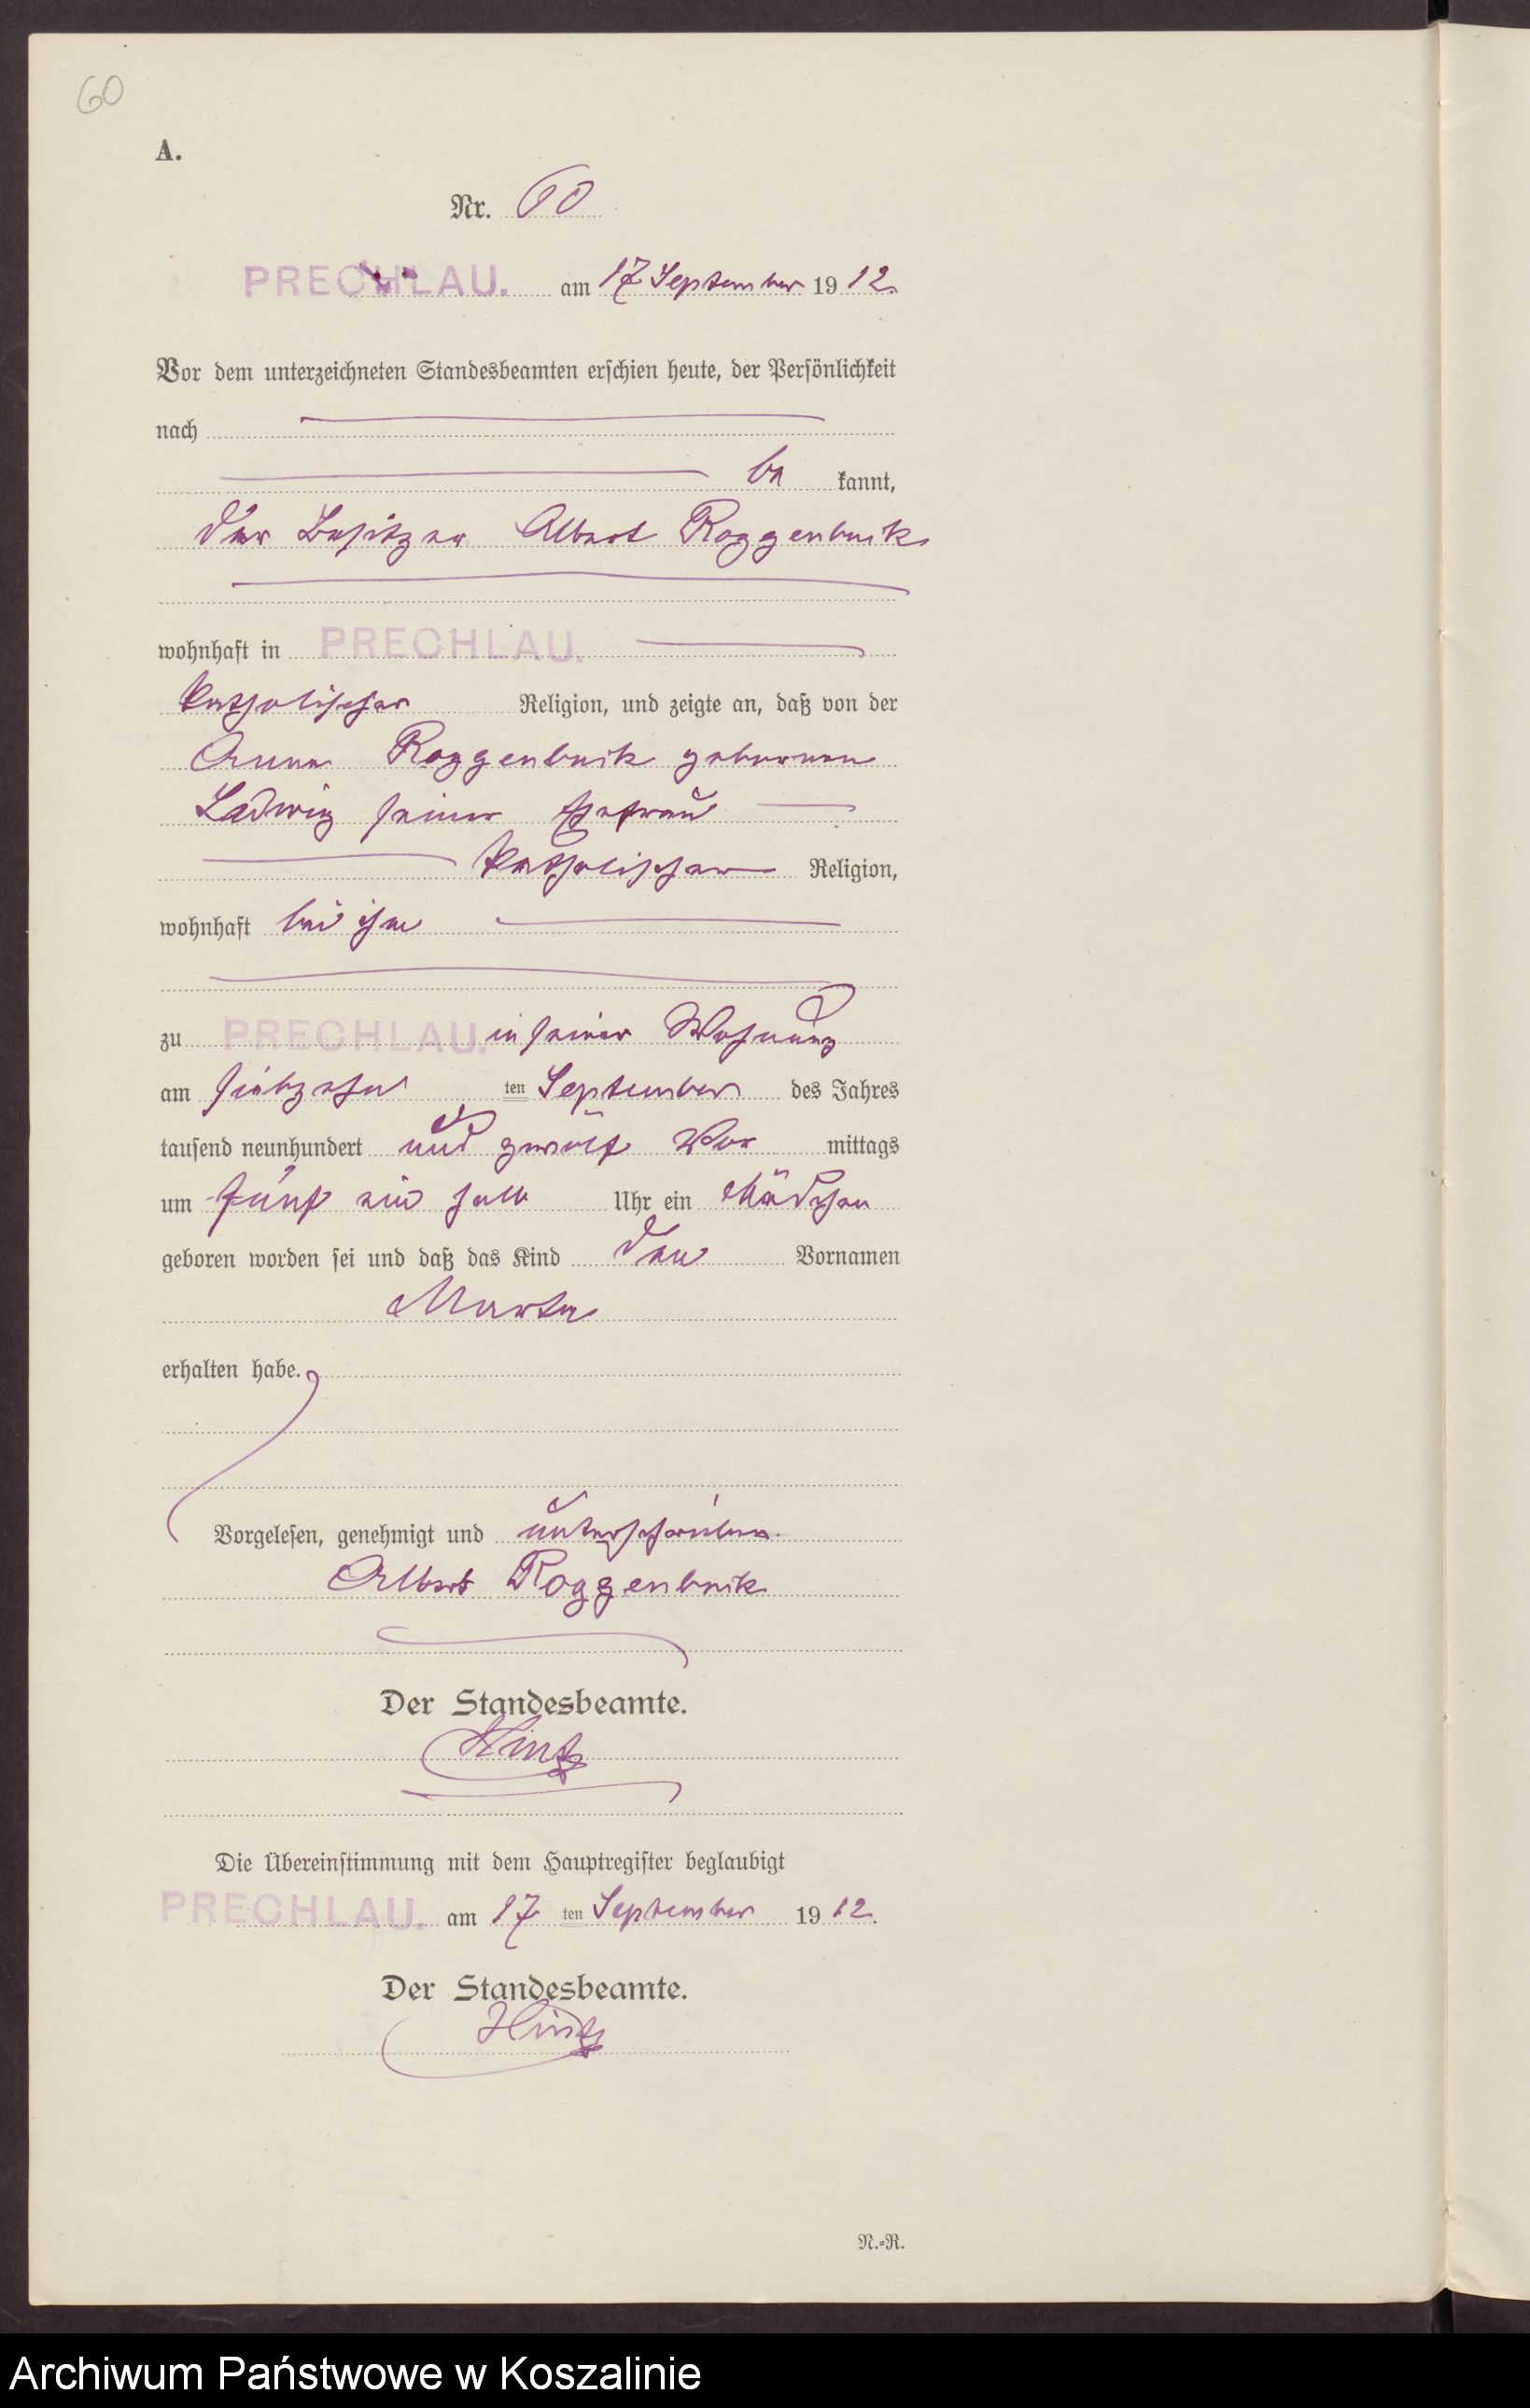 60
A.
Nr. 60
PRECHLAU. am 17 September 1912.
Vor dem unterzeichneten Standesbeamten erschien heute, der Persönlichkeit
nach
be kannt,
der Besitzer Albert Roggenbuck
wohnhaft in PRECHLAU.
katholischer Religion, und zeigte an, daß von der
Anna Roggenbuck geborenen
Ladwig seiner Ehefrau
katholischer Religion,
wohnhaft bei ihm
zu PRECHLAU. in seiner Wohnung
am siebzehn ten September des Jahres
tausend neunhundert und zwölf Vor mittags
um fünf ein halb Uhr ein Mädchen
geboren worden sei und daß das Kind den Vornamen
Martha
erhalten habe.
Vorgelesen, genehmigt und unterschrieben.
Albert Roggenbuck
Der Standesbeamte.
Hintz
Die Übereinstimmung mit dem Hauptregister beglaubigt
PRECHLAU. am 17 ten September 1912.
Der Standesbeamte.
Hintz
N.=R.
Archiwum Państwowe w Koszalinie